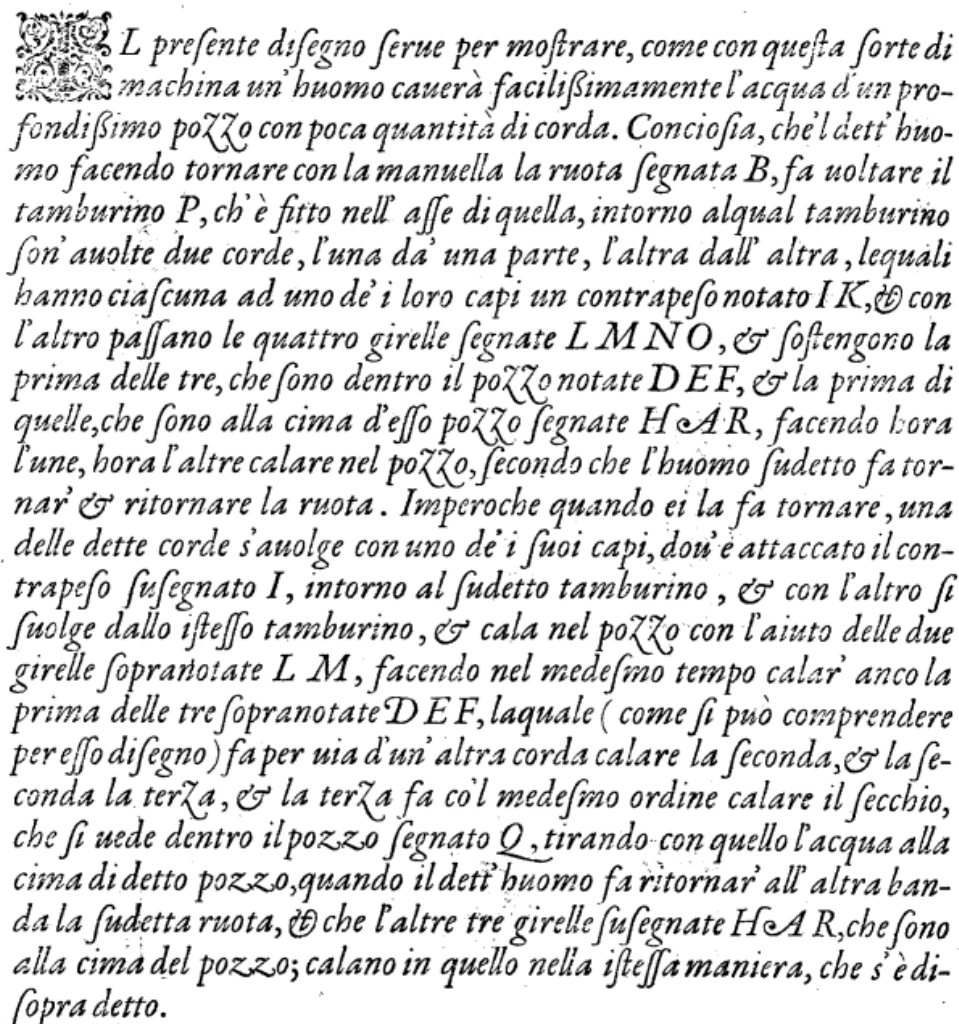 IL preſente diſegno ſerue per moſtrare, come con queſta ſorte di
machina un' huomo cauerà faciliſſimamente l'acqua d'un pro-
fondiſſimo pozzo con poca quantità di corda. Concioſia, che'l dett' huo-
mo facendo tornare con la manuella la ruota ſegnata B, fa uoltare il
tamburino P, ch'è fitto nell' aſſe di quella, intorno alqual tamburino
ſon' auolte due corde, l'una da' una parte, l'altra dall' altra, lequali
hanno ciaſcuna ad uno de' i loro capi un contrapeſo notato I K, & con
l'altro paſſano le quattro girelle ſegnate L M N O, & ſoſtengono la
prima delle tre, che ſono dentro il pozzo notate D E F, & la prima di
quelle, che ſono alla cima d'eſſo pozzo ſegnate H A R, facendo hora
l'une, hora l'altre calare nel pozzo, ſecondo che l'huomo ſudetto fa tor-
nar' & ritornare la ruota. Imperoche quando ei la fa tornare, una
delle dette corde s'auolge con uno de' i ſuoi capi, dou' è attaccato il con-
trapeſo ſuſegnato I, intorno al ſudetto tamburino, & con l'altro ſi
ſuolge dallo iſteſſo tamburino, & cala nel pozzo con l'aiuto delle due
girelle ſopranotate L M, facendo nel medeſmo tempo calar' anco la
prima delle tre ſopranotate D E F, laquale ( come ſi può comprendere
per eſſo diſegno ) fa per uia d'un' altra corda calare la ſeconda, & la ſe-
conda la terza, & la terza fa co'l medeſmo ordine calare il ſecchio,
che ſi uede dentro il pozzo ſegnato Q, tirando con quello l'acqua alla
cima di detto pozzo, quando il dett' huomo fa ritornar' all' altra ban-
da la ſudetta ruota, & che l'altre tre girelle ſuſegnate H A R, che ſono
alla cima del pozzo; calano in quello nella iſteſſa maniera, che s'è di-
ſopra detto.